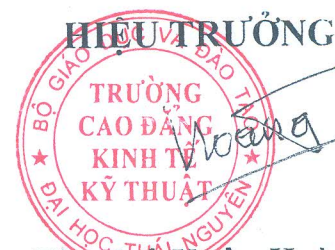 HIỆU TRƯỞNG
BỘ GIÁO DỤC VÀ ĐÀO TẠO
TRƯỜNG
CAO ĐẲNG
KINH TẾ
KỸ THUẬT
ĐẠI HỌC THÁI NGUYÊN
Hoàng